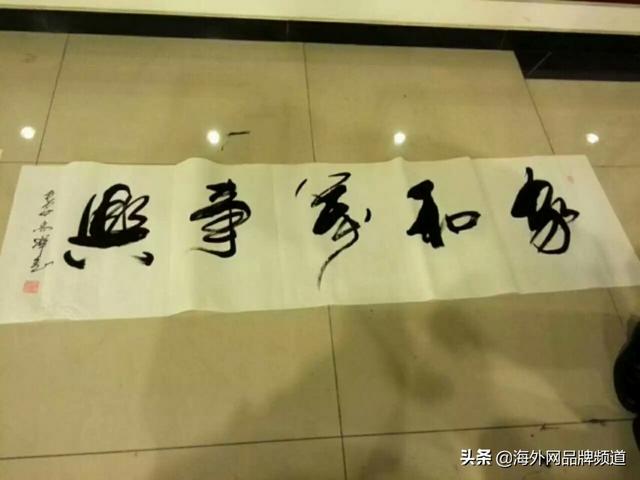 家和萬事興
头条 @海外网品牌频道